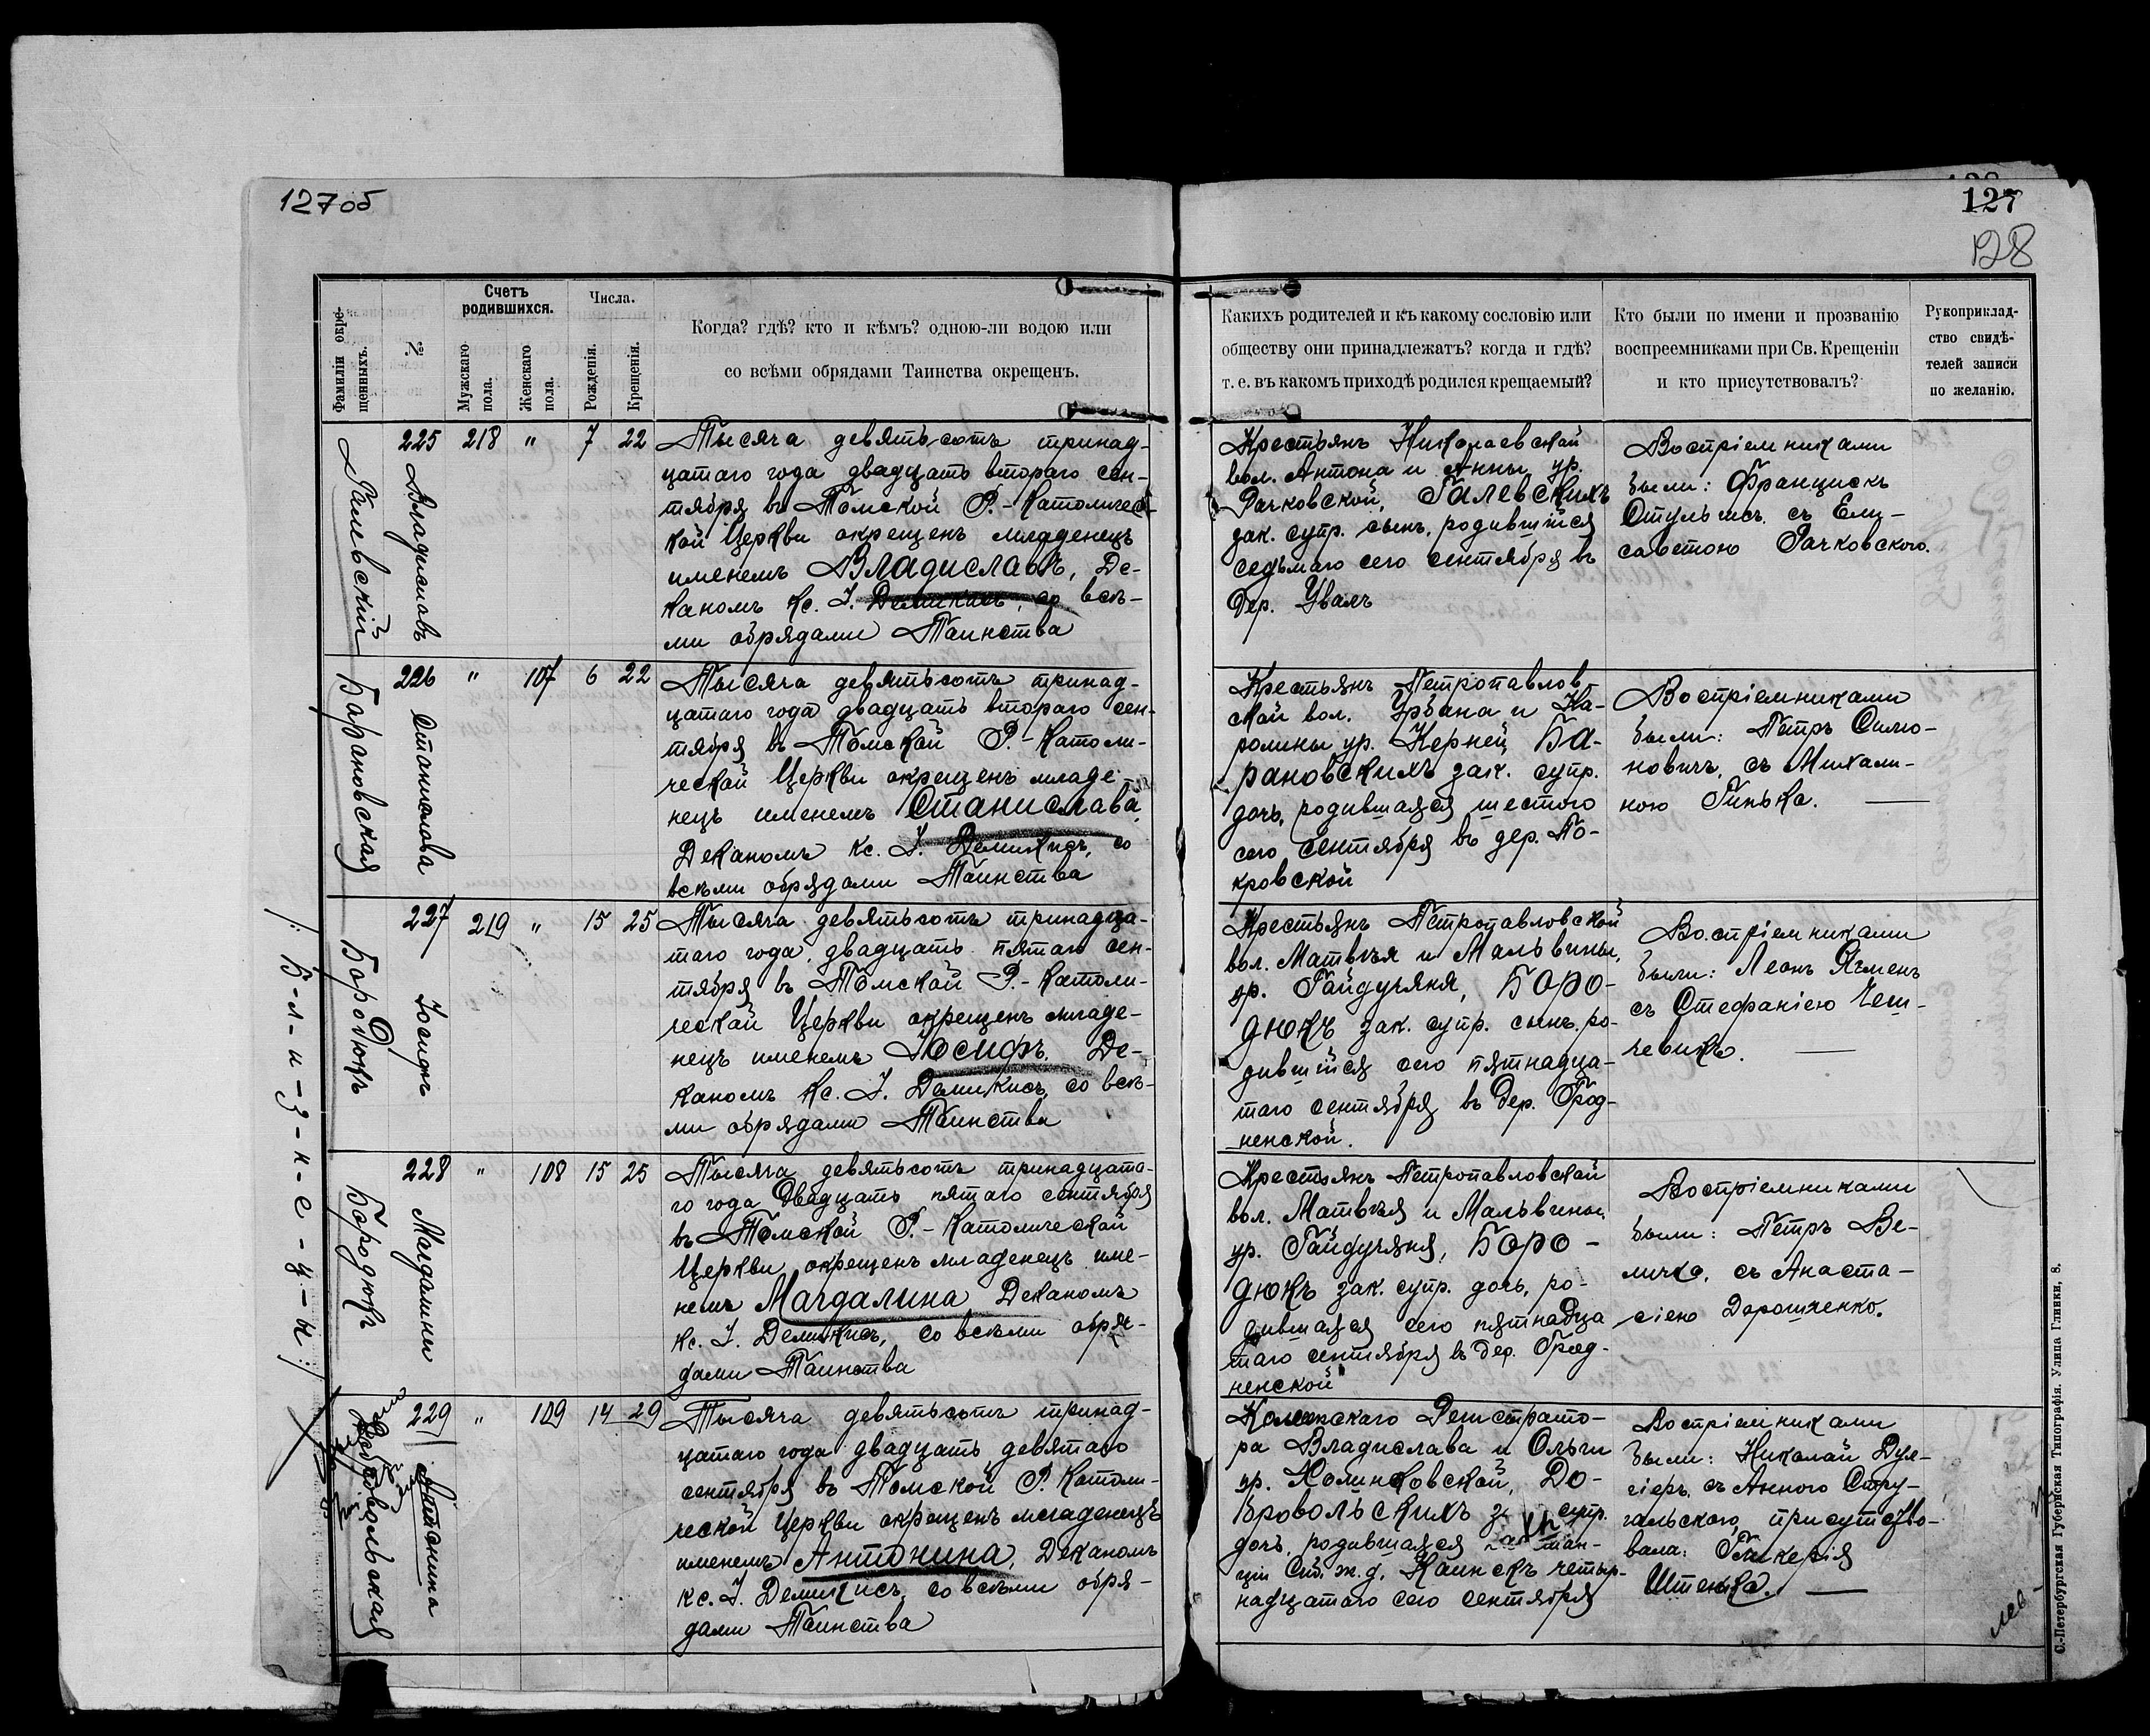 127об
127
128
Фамиліи окрещенныхъ.
№
Счетъ родившихся.
Мужскаго пола.
Женскаго пола.
Числа.
Рожденія.
Крещенія.
Когда? гдѣ? кто и кѣмъ? одною-ли водою или
со всѣми обрядами Таинства окрещенъ.
Какихъ родителей и къ какому сословію или
обществу они принадлежатъ? когда и гдѣ?
т. е. въ какомъ приходѣ родился крещаемый?
Кто были по имени и прозванію
воспреемниками при Св. Крещеніи
и кто присутствовалъ?
Рукоприклад-
ство свидѣ-
телей записи
по желанію.
Галевскій
225 218 " 7 22
Владиславъ
Тысяча девятьсотъ тринад-
цатаго года двадцать втораго сен-
тября въ Томской Р.-Католичес-
кой Церкви окрещенъ младенецъ
именемъ Владиславъ, Де-
каномъ Кс. І. Демикисъ, со всѣ-
ми обрядами Таинства
Крестьянъ Николаевской
вол. Антона и Анны ур.
Рачковской, Галевскихъ
зак. супр. сынъ, родившійся
седьмаго сего сентября въ
Дер. Увалъ
Воспріемниками
были: Францискъ
съ Ели-
саветою Рачковского.
Барановская
226 " 107 6 22
Станислава
Тысяча девятьсотъ тринад-
цатаго года двадцать втораго сен-
тября въ Томской Р.-Католи-
ческой Церкви окрещенъ младе-
нецъ именемъ Станислава,
Деканомъ Кс. І. Демикисъ, со
всѣми обрядами Таинства
Крестьянъ Петропавлов-
ской вол. Урбана и Ка-
ролины ур. Керней, Ба-
рановскихъ зак. супр.
дочь, родившаяся шестого
сего сентября въ дер. По-
кровской
Воспріемниками
были: Петръ Симо-
новичъ, съ Михали-
ною Гинько.
/: Б-л-и-з-н-е-ц-ы :/
Бородюкъ
227 219 " 15 25
Іосифъ
Тысяча девятьсотъ тринадца-
таго года, двадцать пятаго сен-
тября въ Томской Р.-Католи-
ческой Церкви окрещенъ младе-
нецъ именемъ Іосифъ. Де-
каномъ Кс. І. Демикисъ, со всѣ-
ми обрядами Таинства
Крестьянъ Петропавловской
вол. Матвѣя и Мальвины,
ур. Гайдучяня, Боро-
дюкъ зак. супр. сынъ, ро-
дившійся сего пятнадца-
таго сентября въ Дер. Грод-
ненской.
Воспріемниками
были: Леонъ Ячменъ
съ Стефаніею
Бородюкъ
228 " 108 15 25
Магдалина
Тысяча девятьсотъ тринадцата-
го года двадцать пятаго сентября
въ Томской Р.-Католической
Церкви окрещенъ младенецъ име-
немъ Магдалина Деканомъ
Кс. І. Демикисъ, со всѣми обря-
дами Таинства
Крестьянъ Петропавловской
вол. Матвѣя и Мальвины
ур. Гайдучяня, Боро-
дюкъ зак. супр. дочь, ро-
дившаяся сего пятнадца
таго сентября въ дер. Грод-
ненской
Воспріемниками
были: Петръ Ве-
личко, съ Анаста-
сіею Дорошченко.
Добровольская
229 " 109 14 29
Антонина
Тысяча девятьсотъ тринад-
цатаго года двадцать девятаго
сентября въ Томской Р. Католи-
ческой Церкви окрещенъ младенецъ
именемъ Антонина, Деканомъ
Кс. І. Демикисъ, со всѣми обря-
дами Таинства
Коллежскаго Регистрато-
ра Владислава и Ольги
ур. Холинковской, До-
бровольскихъ зак. супр.
дочь, родившаяся на стан-
ціи Сиб. ж. д. Каинскъ четыр-
надцатаго сего сентября
Воспріемниками
были: Николай Дул-
съ Анною Стру-
гальскою, присутство-
вала: Гликерія
С.-Петербургская Губернская Типографія. Улица Глинки, 8.